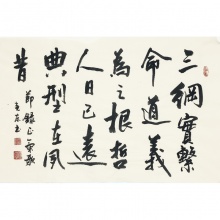 三綱實繫
命道義
為之根哲
人日已遠
典型在夙
昔
節錄正氣歌